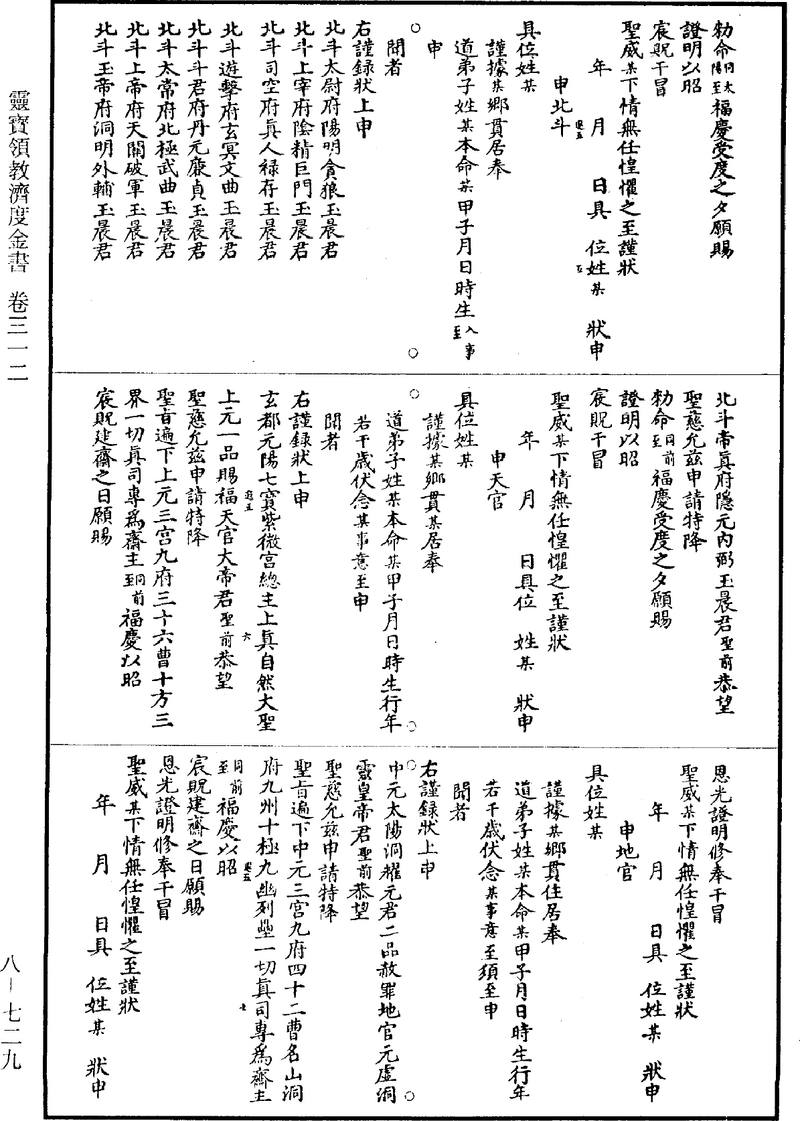 勑命同太陽至福慶受度之夕願賜
證明以昭
宸貺干冒
聖威某下情無任惶懼之至謹狀
年 月 日具位姓某 狀申
申北斗
具位姓某
謹據某鄉貫居奉
道弟子姓某本命某甲子月日時生入事至
申
聞者
右謹録狀上申
北斗太尉府陽明貪狼玉晨君
北斗上宰府陰精巨門玉晨君
北斗司空府真人禄存玉晨君
北斗遊擊府玄冥文曲玉晨君
北斗斗君府丹元廉貞玉晨君
北斗太常府北極武曲玉晨君
北斗上帝府天關破軍玉晨君
北斗玉帝府洞明外輔玉晨君
北斗帝真府隱元內弼玉晨君聖前恭望
聖慈允兹申請特降
勑命同前至福慶受度之夕願賜
證明以昭
宸貺干冒
聖威某下情無任惶懼之至謹狀
年 月 日具位 姓某 狀申
申天官
具位姓某
謹據某鄉貫某居奉
道弟子姓某本命某甲子月日時生行年
若干歲伏念某事意至申
聞者
右謹録狀上申
玄都元陽七寳紫微宮總主上真自然大聖
上元一品賜福天官大帝君聖前恭望
聖慈允兹申請特降
聖旨遍下上元三宮九府三十六曹十方三
界一切真司專爲齋主同前至福慶以昭
宸貺建齋之日願賜
恩光證明修奉干冒
聖威某下情無任惶懼之至謹狀
年 月 日具位姓某 狀申
申地官
具位姓某
謹據某鄉貫住居奉
道弟子姓某本命某甲子月日時生行年
若干歲伏念某事意至須至申
聞者
右謹録狀上申
中元太陽洞耀元君二品赦罪地官元虛洞
靈皇帝君聖前恭望
聖慈允兹申請特降
聖旨遍下中元三宮九府四十二曹名山洞
府九州十極九幽列壘一切真司專爲齋主
同前至福慶以昭
宸貺建齋之日願賜
恩光證明修奉干冒
聖威某下情無任惶懼之至謹狀
年 月 日具 位姓某 狀申
靈寶領教濟度金書 卷三一二
八－七二九